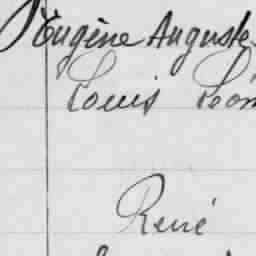 Eugène Auguste
Louis Léon
René